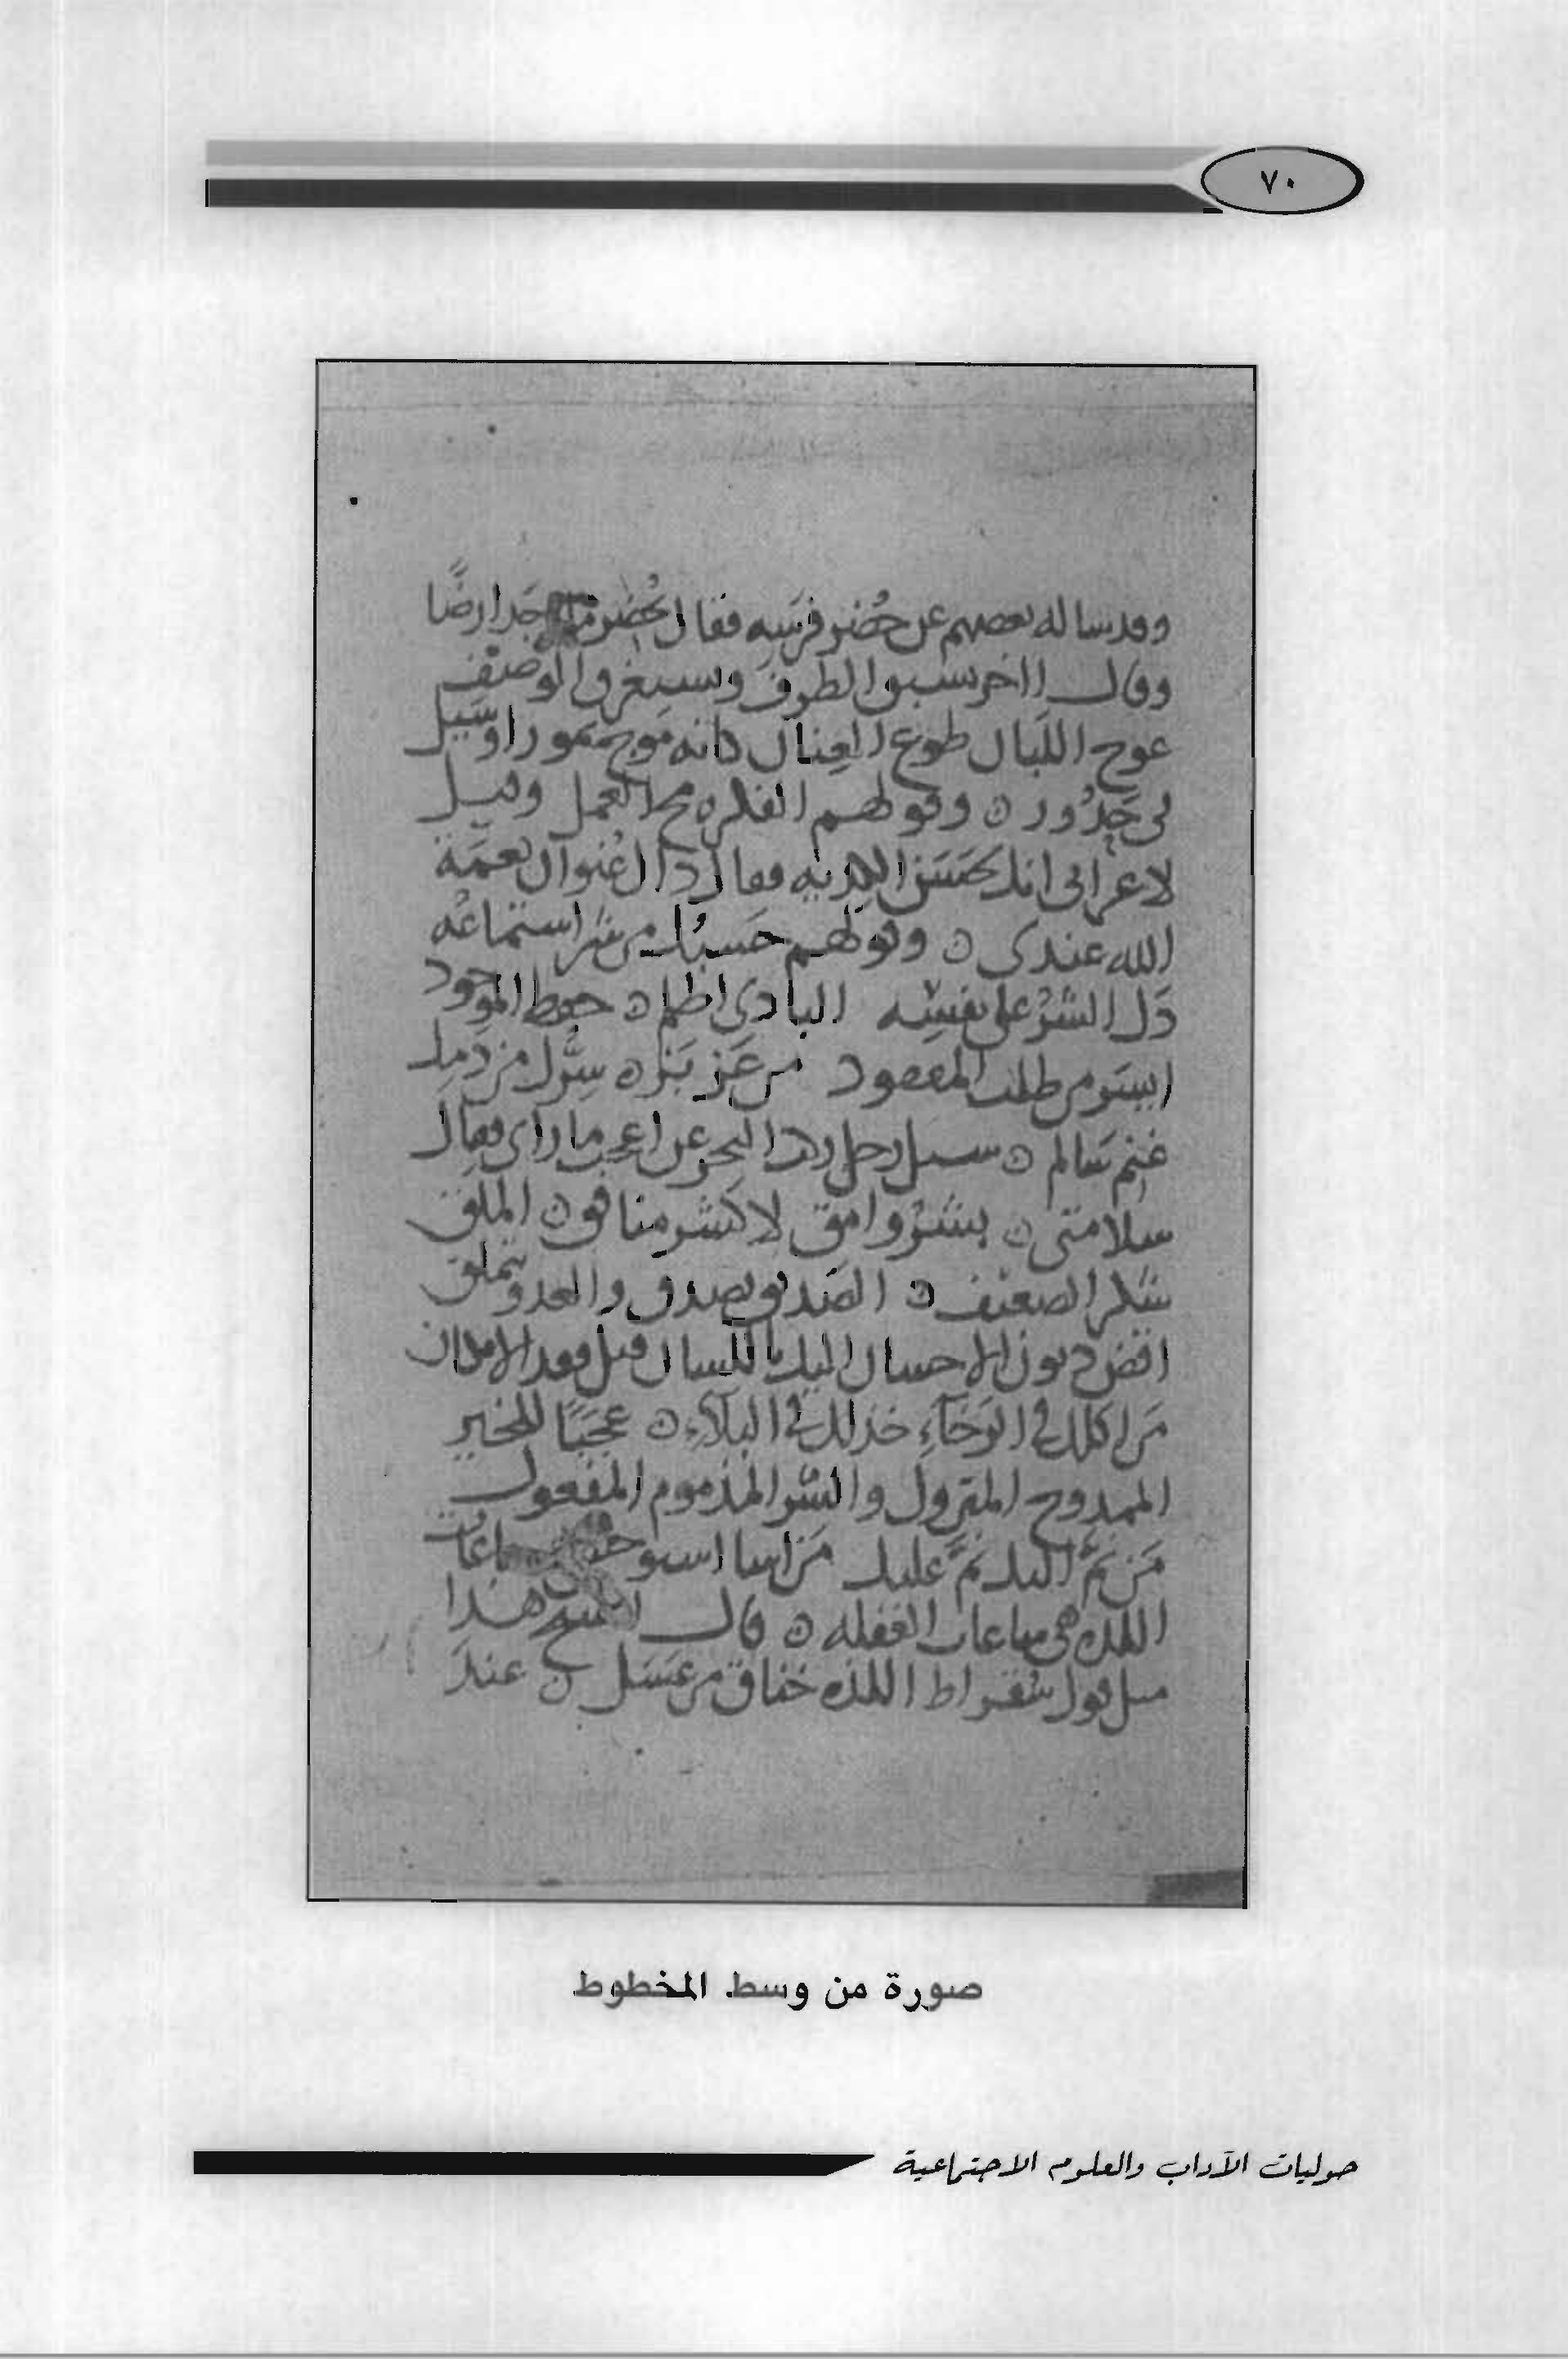 ٧٠
وقد ساله بعضهم عن حُضر فرسه فقال يُحضر ما وجد ارضًا
وقال اخر يسبق الطرف ويستغرق الوصف
عوج اللبان طوع العنان كانه موج يمور او سيل
في حدُور ٥ وقولهم الفكره مخ العمل وقيل
لاعرابي انك تحسن فقال ذاك عُنوان نعمة
الله عندي ٥ وقولهم حَسبك من شر استماعه
دَل الشرُّ على نفسه البادي اظلم ٥ حفظ الموجود
ايسر من طلب المفقود من عَزَّ بَزَّ ٥ سِرُّك من دمك
غنم سَالم ٥ سيل رجل ركب البحر عن اعجب ما راى فقال
سلامتي ٥ بشرُ وامق لا كشر منافق ٥ الملق
شكر الضعيف ٥ الصَديق يصدق والعدو يتملق
اقض ديون الاحسان اليك باللسان قبل فقد الامكان
مَن اكلك في الرَخاءِ خذلك في البلاءِ ٥ عَجَبًا للخير
الممدوح المتروك والشر المذموم المفعول
مَن نمَّ اليك نمَّ عليك مَن اسا استوحش ساعات
اللذه هي ساعات الغفله ٥ قال هذا
مثل قول سُقراط اللذه خناق من عَسَل ٥ عندَ
صورة من وسط المخطوط
حوليات الآداب والعلوم الاجتماعية